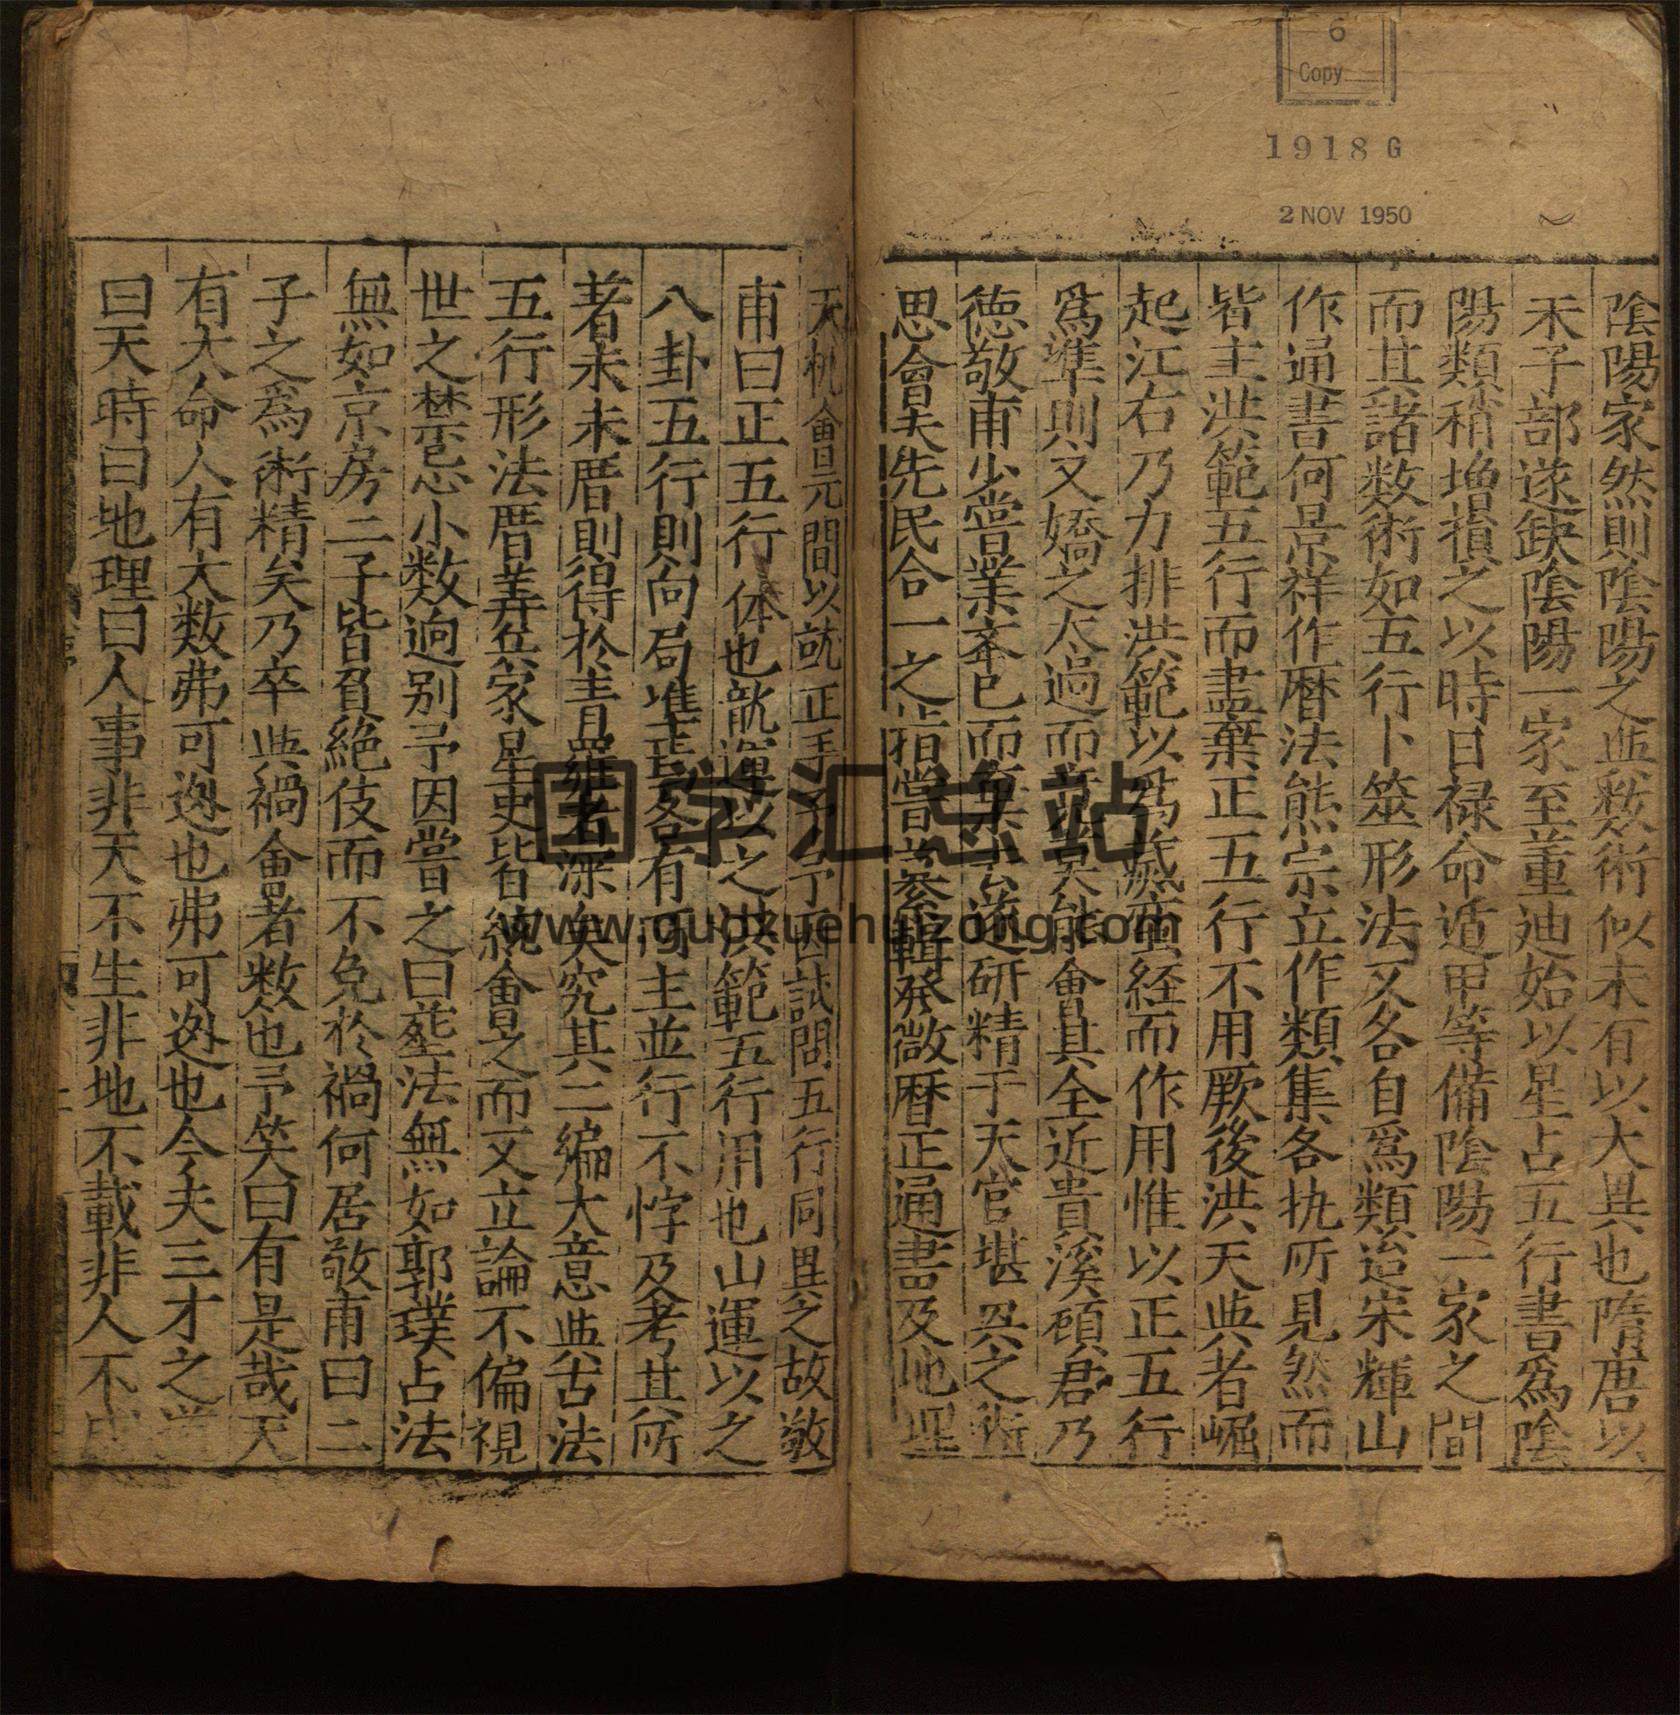 6
Copy
1918 G
2 NOV 1950
陰陽家然則陰陽之與数術似未有以大異也隋唐以
来子部遂缺陰陽一家至董迪始以星占五行書爲陰
陽類稍増損之以時日禄命遁甲等備陰陽一家之間
而其諸数術如五行卜筮形法又各自爲類迨宋輝山
作通書何景祥作暦法熊宗立作類集各执所見然而
皆主洪範五行而盡棄正五行不用厥後洪天與者崛
起江右乃力排洪範以爲滅蠻経而作用惟以正五行
爲準則又矯之太過而莫能會其全近貴溪碩君乃
德敬甫少嘗業而研精于天官堪輿之術
思會夫先民合一之指嘗叅輯發微暦正通書及地理
天机會元間以就正予予因試問五行同異之故敬
甫曰正五行体也龍運以之洪範五行用也山運以之
八卦五行則向局準焉各有所主並行不悖及考其所
著未未暦則得於青羅者深矣究其二編大意與古法
五行形法暦筭兵家星史皆統會之而又立論不偏視
世之禁忌小数逈别予因嘗之曰塟法無如郭璞占法
無如京房二子皆負絶伎而不免於禍何居敬甫曰二
子之爲術精矣乃卒與禍會者数也予笑曰有是哉天
有大命人有大数弗可逃也弗可逃也今夫三才之
曰天時曰地理曰人事非天不生非地不載非人不
国学汇总站
www.guoxuehuizong.com